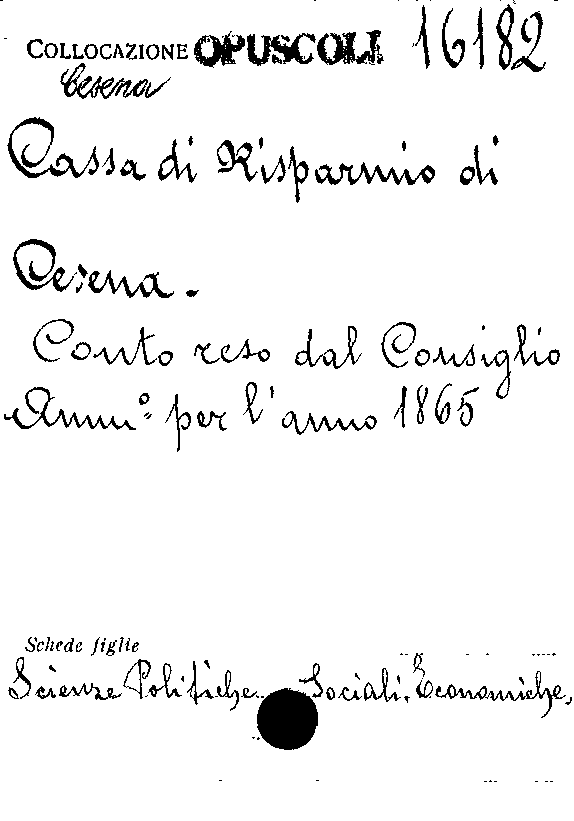 COLLOCAZIONE OPUSCOLI 16182
Cesena
Cassa di Risparmio di
Cesena.
Conto reso dal Consiglio
Amm.° per l'anno 1865
Schede figlie
Scienze Politiche Sociali. Economiche,